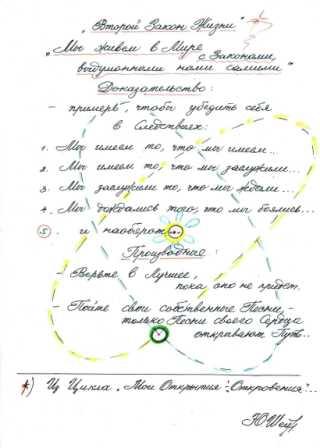 "Второй Закон Жизни"
"Мы живём в Мире
с Законами,
выдуманными нами самими"
Доказательство:
- примеры, чтобы убедить себя
в следствиях:
1. Мы имеем то, что мы имеем...
2. Мы имеем то, что мы заслужили...
3. Мы заслужили то, что мы ждали...
4. Мы дождались того, что мы боялись...
5. и наоборот...
Производные:
- Верьте в Лучшее,
пока оно не придёт.
- Пойте свои собственные Песни, -
только Песни своего Сердца
открывают Путь...
*) Из Цикла "Мои Открытия-Откровения"...